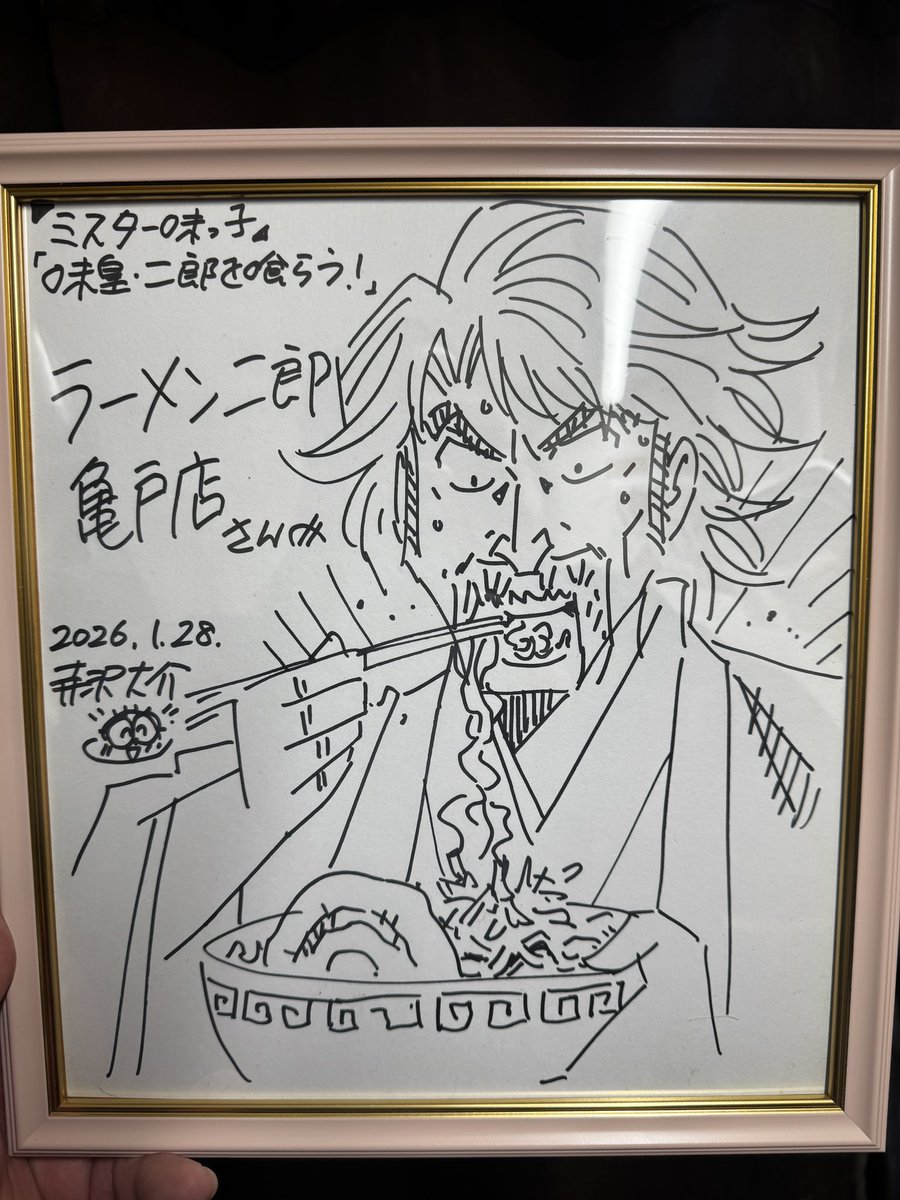 『ミスター味っ子』
「味皇・二郎を喰らう!」
ラーメン二郎
亀戸店さん江
2026.1.28.
寺沢大介